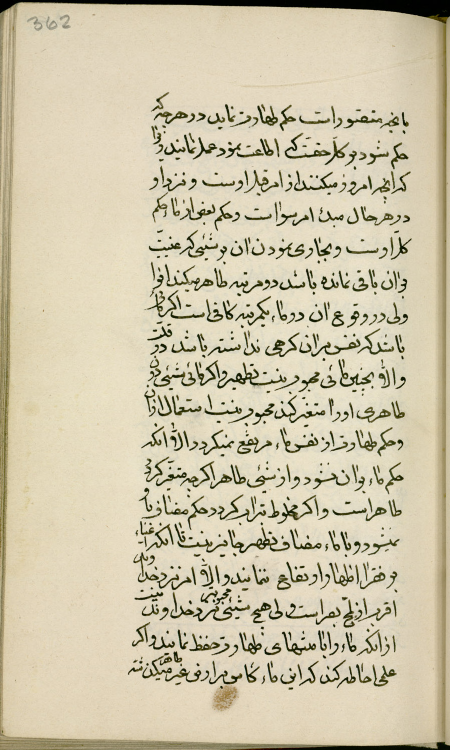 362
بانچه مقدور است حکم طهارت نماید در هرچه که
حکم شود بر کل حقست که اطاعت نموده عمل نمایند زیرا
که آنچه امروز میکنند از امر قبل اوست و نزد او
در هر حال مبدء امر سواست و حکم بعد از ماء حکم
کل اوست و بجاری نمودن ان بر شیئی که عینیت
در ان باقی نمانده باشد دو مرتبه طاهر میکند او را
ولی در وقوع ان در ماء یکمرتبه کافی است اگر ماء
باشد که نفس بر ان کرهی نداشته باشد در
والا بچنین مائی محبوب نیست تطهیر و اگر مائی شیئی
طاهری او را متغیر کند محبوب نیست استعمال از ان
و حکم طهارت از نفس ماء مرتفع نمیگردد الا انکه
حکم ماء بر ان نشود و از شیئی طاهر اگر چه متغیر گردد
طاهر است و اگر مخلوط بتراب گردد حکم مضاف باو
نمیشود و با ماء مضاف تطهیر جایز نیست تا انکه اغنیاء
بر فقرا اظهار ارتفاع ننمایند والا امر نزد خداوند
اقرب از لمح بصر است ولی هیچ شیئی نزد خداوند محبوبتر نیست
از انکه ماء را بامنتهای طهارت حفظ نمایند و اگر
علمی احاطه کند که این ماء کاس بر ارض غیر طاهر گذشته